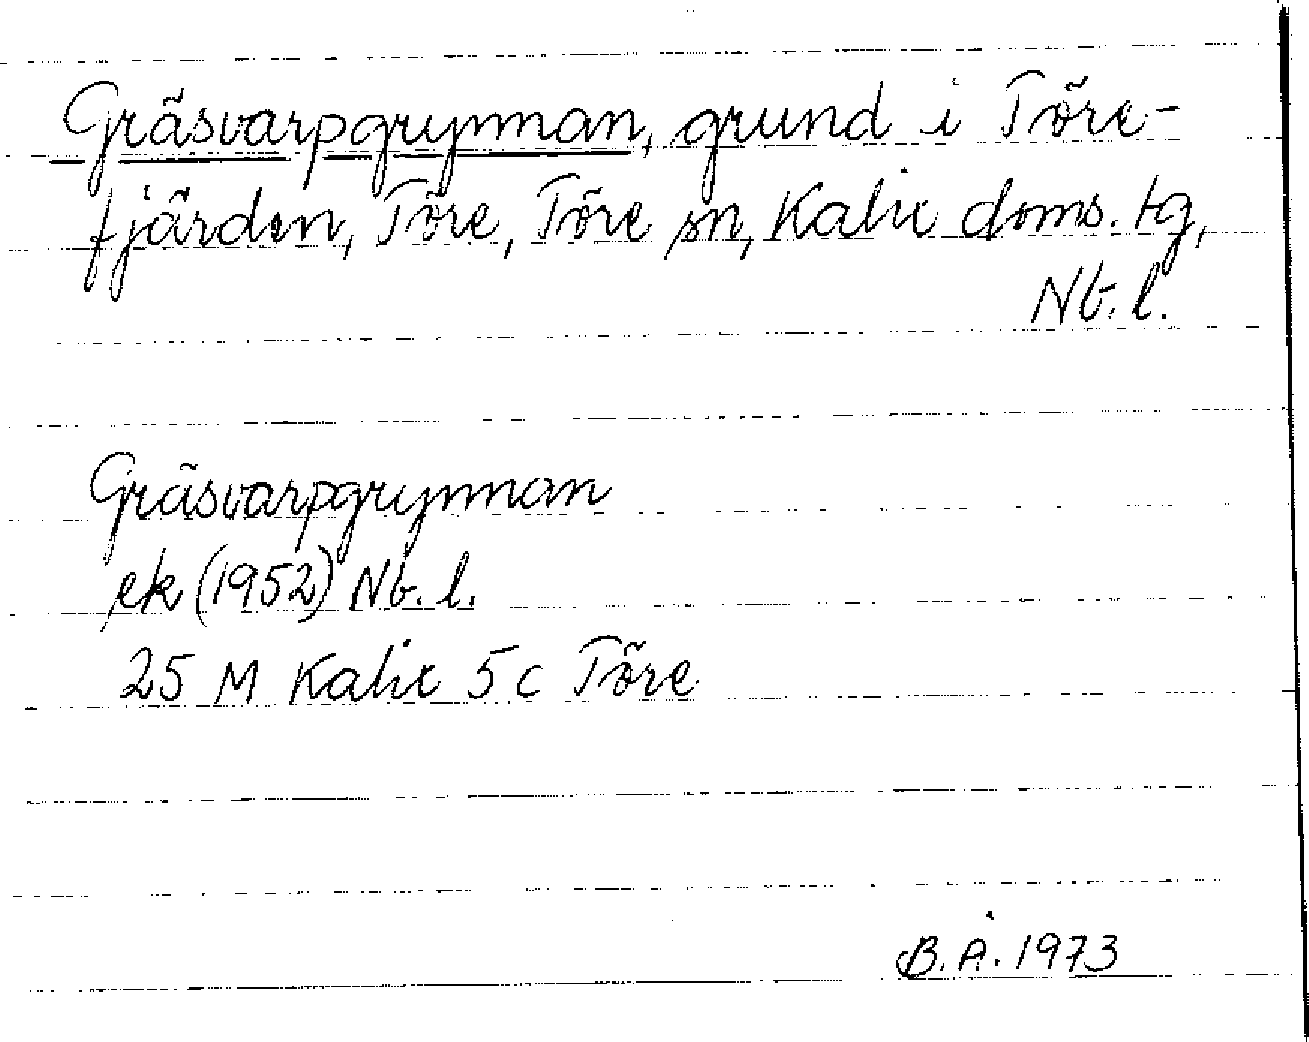 Gräsvarpgrynnan, grund i Töre-
fjärden, Töre, Töre sn, Kalix doms. tg,
Nb. l.
Gräsvarpgrynnan
ek (1952) Nb. l.
25 M Kalix 5 c Töre
B. Å. 1973